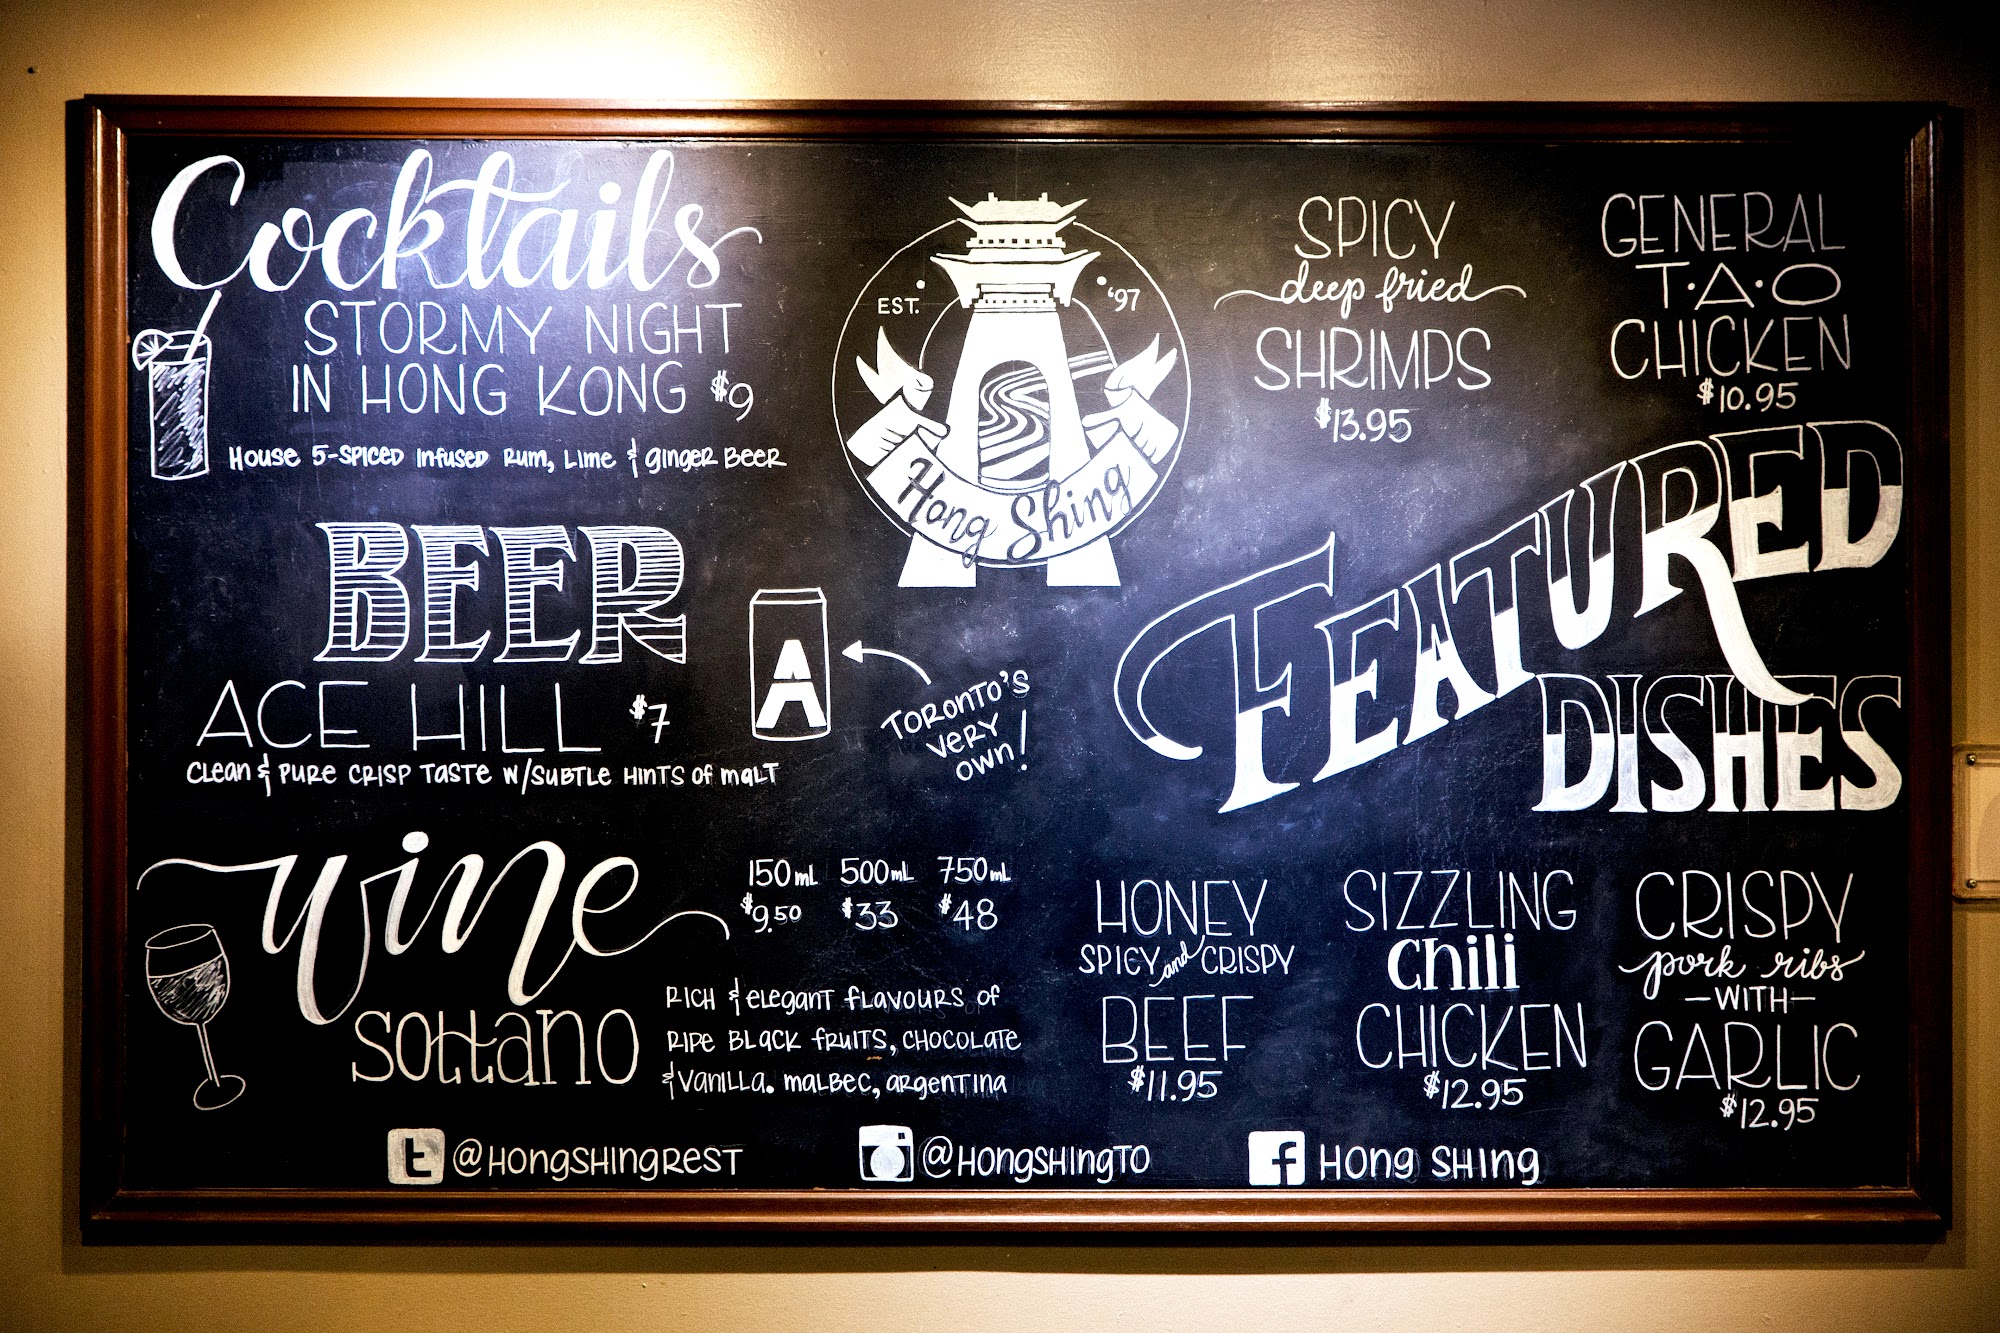 Cocktails
STORMY NIGHT
IN HONG KONG $9
House 5-SPICED INFUSED RUM, LIME & GINGER BEER
BEER
ACE HILL $7
CLEAN & PURE CRISP TASTE W/SUBTLE HINTS OF MALT
A
TORONTO'S
VERY
OWN!
Wine
150mL 500mL 750mL
$9.50 $33 $48
Sottano
RICH & ELEGANT FLAVOURS OF
RIPE BLACK FRUITS, CHOCOLATE
& VANILLA. MALBEC, ARGENTINA
EST. '97
Hong Shing
SPICY
deep fried
SHRIMPS
$13.95
GENERAL
T·A·O
CHICKEN
$10.95
FEATURED
DISHES
HONEY
SPICY and CRISPY
BEEF
$11.95
SIZZLING
Chili
CHICKEN
$12.95
CRISPY
pork ribs
-WITH-
GARLIC
$12.95
t @HONGSHINGREST
@HONGSHINGTO
f HONG SHING